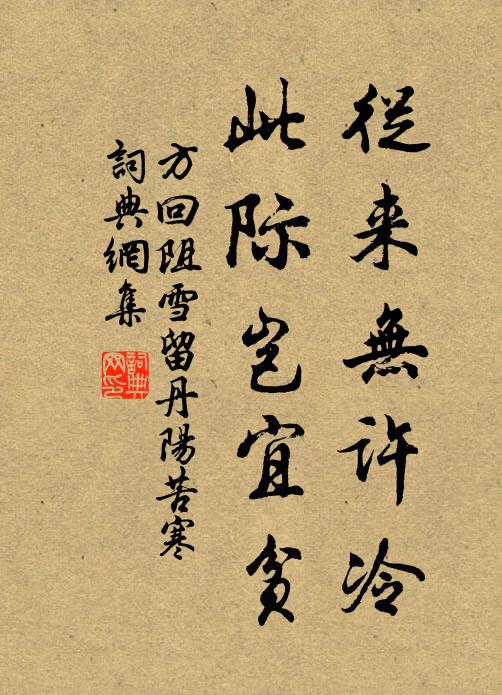 從来無许冷
此际岂宜貧
方回阻雪留丹陽苦寒
詞典網集
詞典
网印